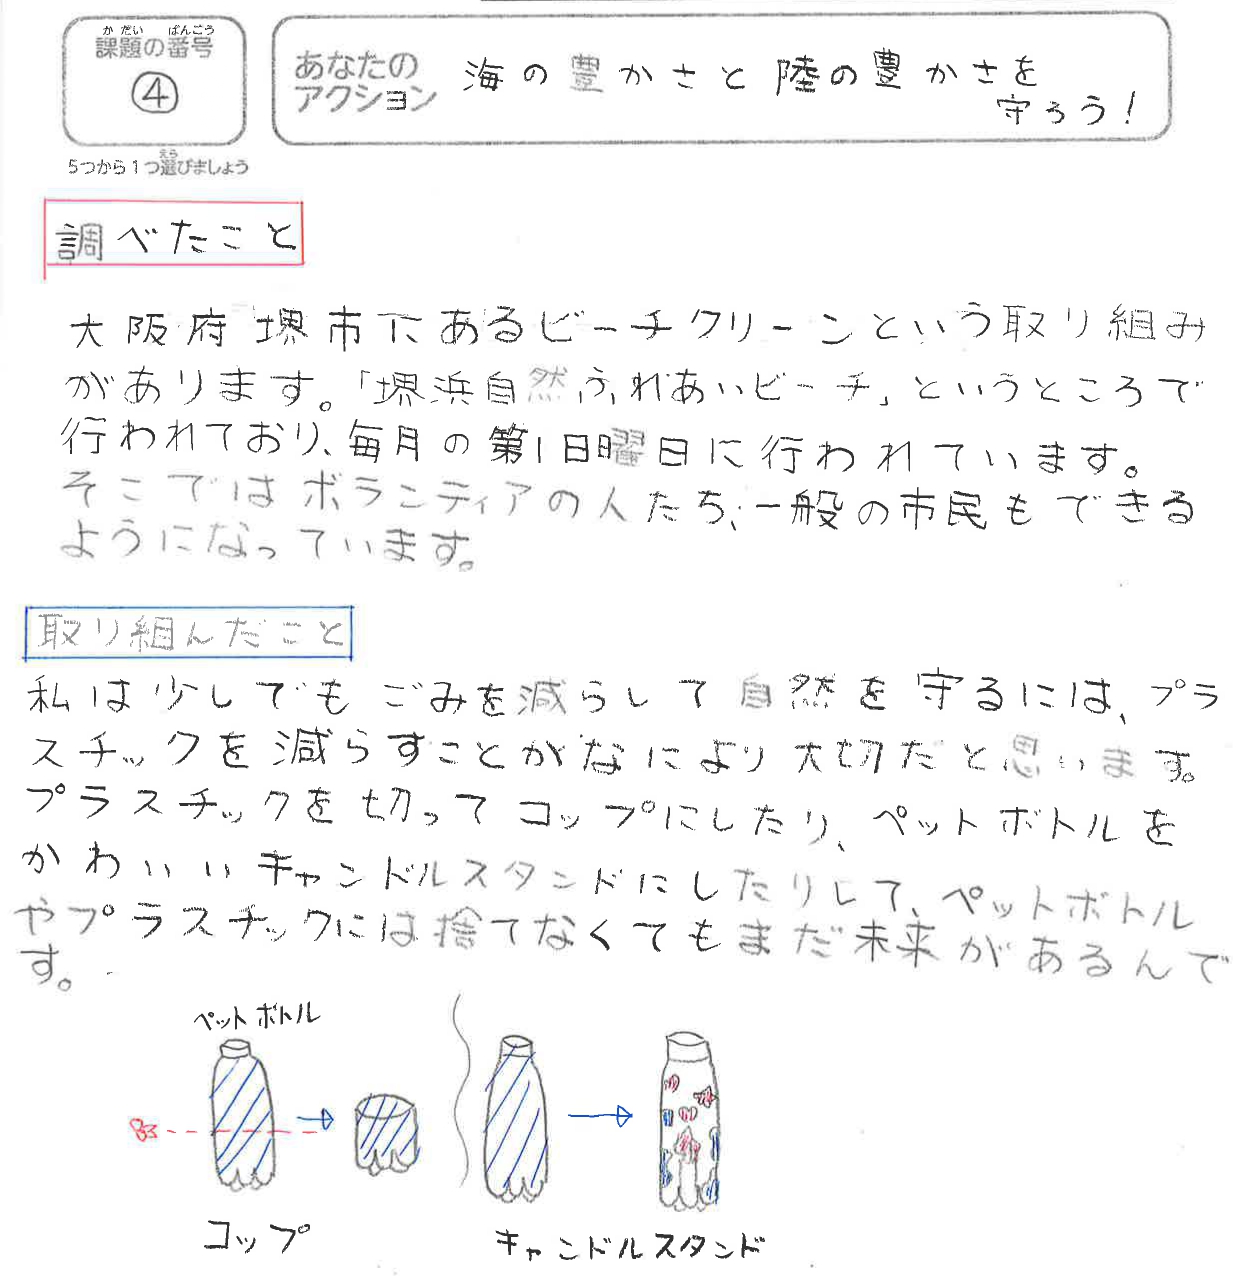 課題の番号
かだい ばんごう
④
5つから1つ選びましょう
えら
あなたの
アクション
海の豊かさと陸の豊かさを
守ろう!
調べたこと
大阪府堺市にあるビーチクリーンという取り組み
があります。「堺浜自然ふれあいビーチ」というところで
行われており、毎月の第1日曜日に行われています。
そこではボランティアの人たち、一般の市民もできる
ようになっています。
取り組んだこと
私は少しでもごみを減らして自然を守るには、プラ
スチックを減らすことがなにより大切だと思います。
プラスチックを切ってコップにしたり、ペットボトルを
かわいいキャンドルスタンドにしたりして、ペットボトル
やプラスチックには捨てなくてもまだ未来があるんで
す。
ペットボトル
コップ
キャンドルスタンド